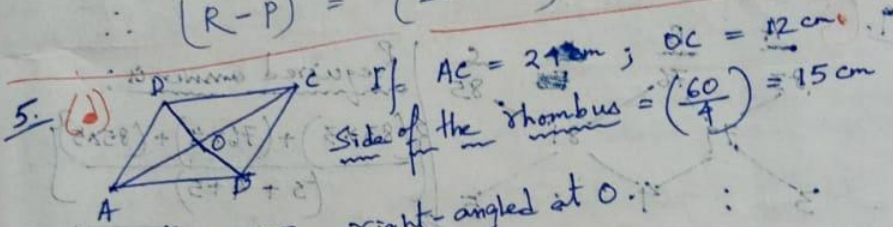 ∴ (R-P) = (
5. (d) D C If AC = 24 cm ; OC = 12 cm.
O
A B
Side of the rhombus = (60/4) = 15 cm
right-angled at O.